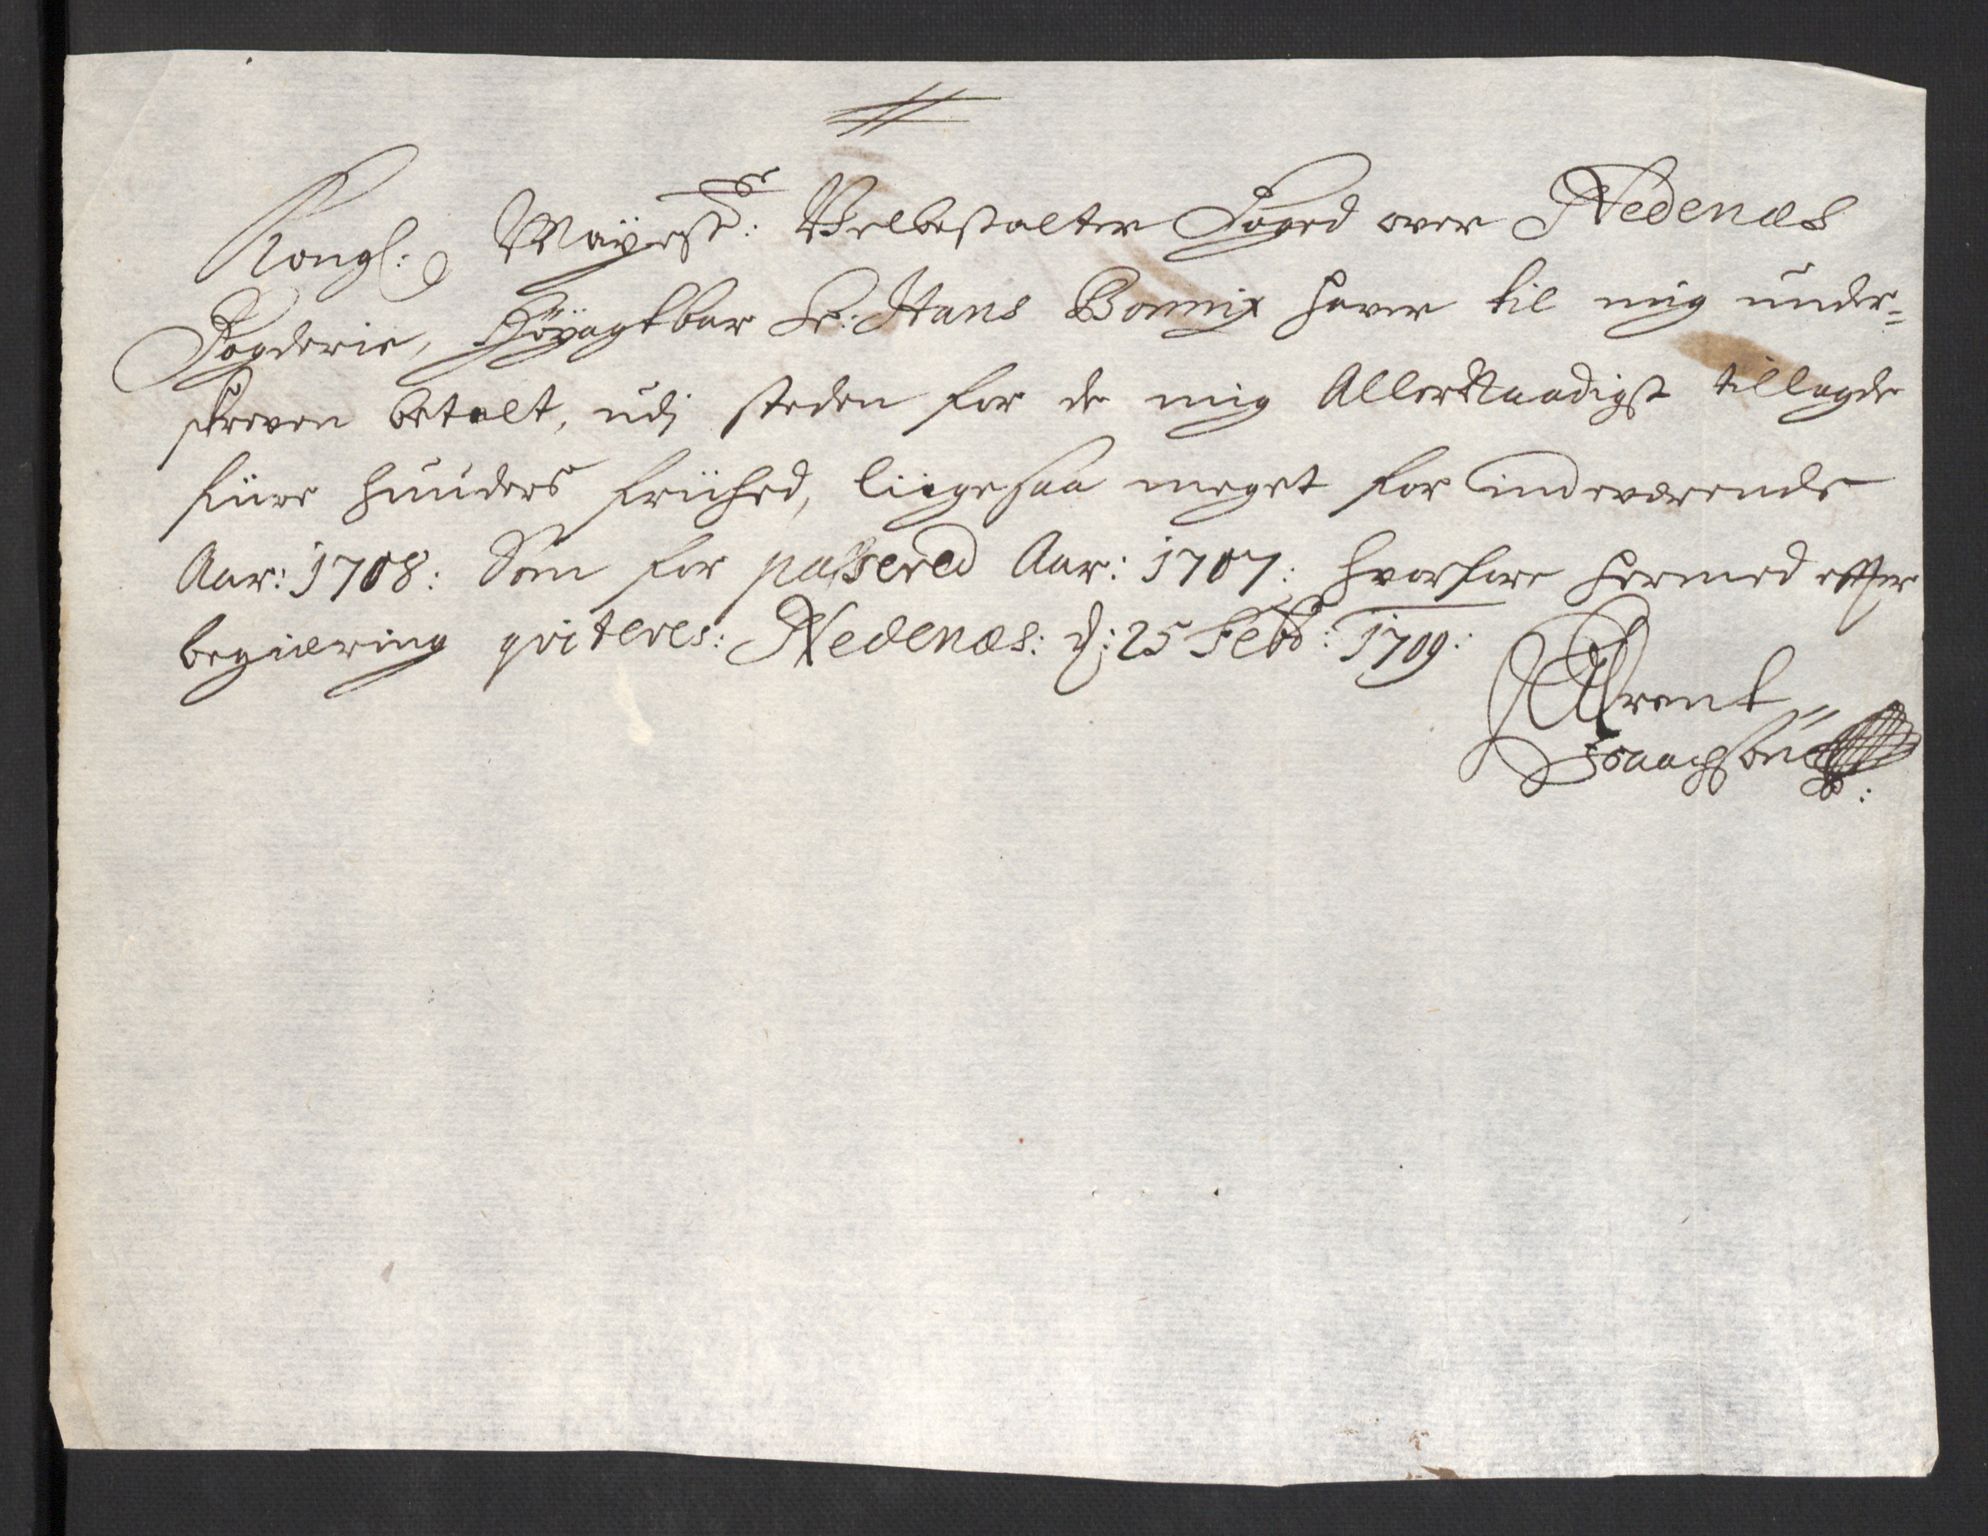 Kongl: Mayst: Velbestalter Foged over Nedenæs
Fogderie, Höyagtbar Sr: Hans Bonnix haver til mig under=
skreven betalt, udj steden for de mig Allernaadigst tillagde
fiire huuders friihed, liigesaa meget for indeværende
Aar: 1708: Som for passered Aar: 1707: hvorfore hermed effter
begiæring qviteres: Nedenæs: d: 25 Febr: 1709:
Arent
Isaachsön